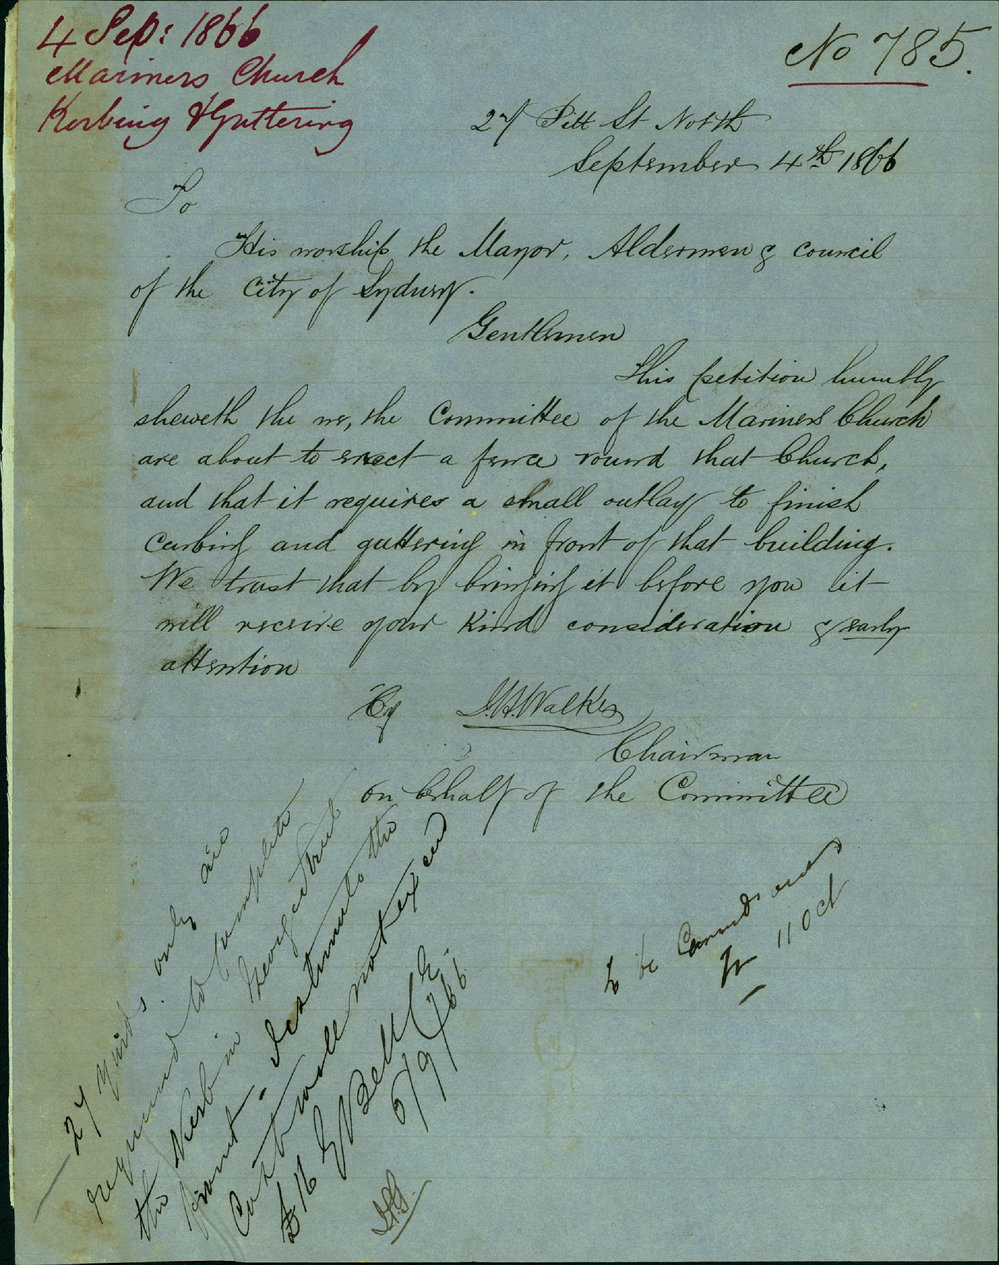 4 Sep: 1866
Mariners Church
Kerbing & Guttering
No 785.
27 Pitt St North
September 4th 1866
To
His worship the Mayor, Aldermen & council
of the City of Sydney.
Gentlemen
This petition humbly
sheweth the we, the Committee of the Mariners Church
are about to erect a fence round that Church,
and that it requires a small outlay to finish
curbing and guttering in front of that building.
We trust that by bringing it before you it
will receive your kind consideration & early
attention
W. Walker
Chairman
on behalf of the Committee
27 yards only are
required to complete
the Kerb in George Street
front. I estimate the
Cost will not exceed
£16 Bell CE
6/9/66
to be Commenced
11 Oct